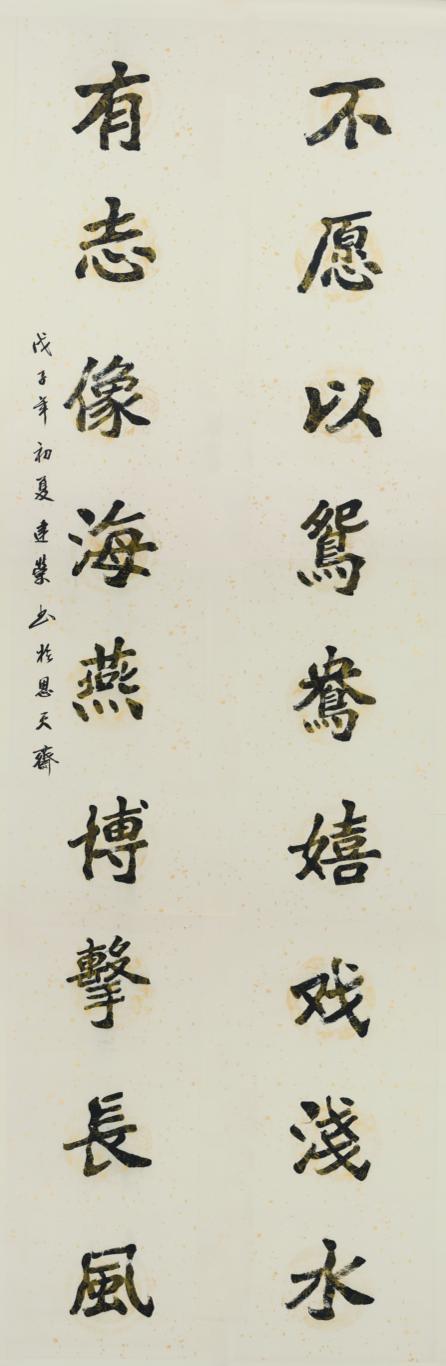 不愿以鸳鸯嬉戏淺水
有志像海燕搏擊長風
戊子年初夏建荣书於恩天齋